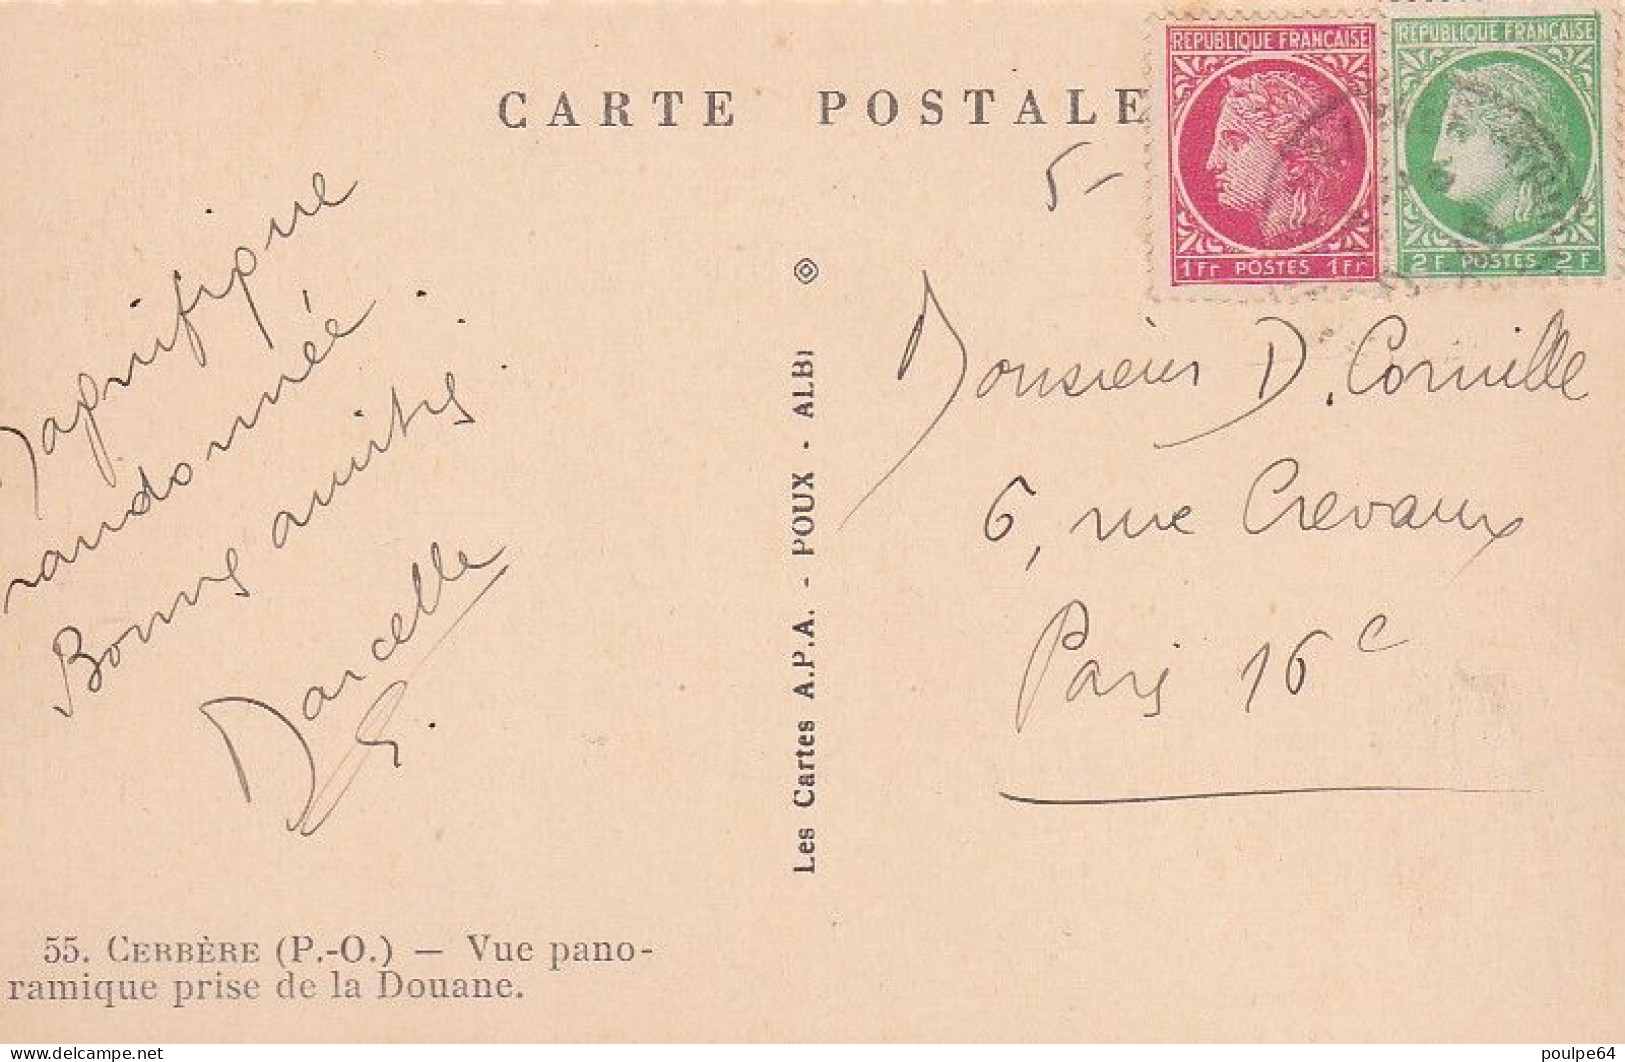 CARTE POSTALE
REPUBLIQUE FRANÇAISE
1Fr POSTES 1Fr
REPUBLIQUE FRANÇAISE
2 F POSTES 2 F
5-
Magnifique
randonnée.
Bonnes amitiés.
Marcelle
Les Cartes A.P.A. - POUX - ALBI
Monsieur D. Cornille
6, rue Crevaux
Paris 16e
55. CERBÈRE (P.-O.) — Vue pano-
ramique prise de la Douane.
delcampe.net
poulpe64